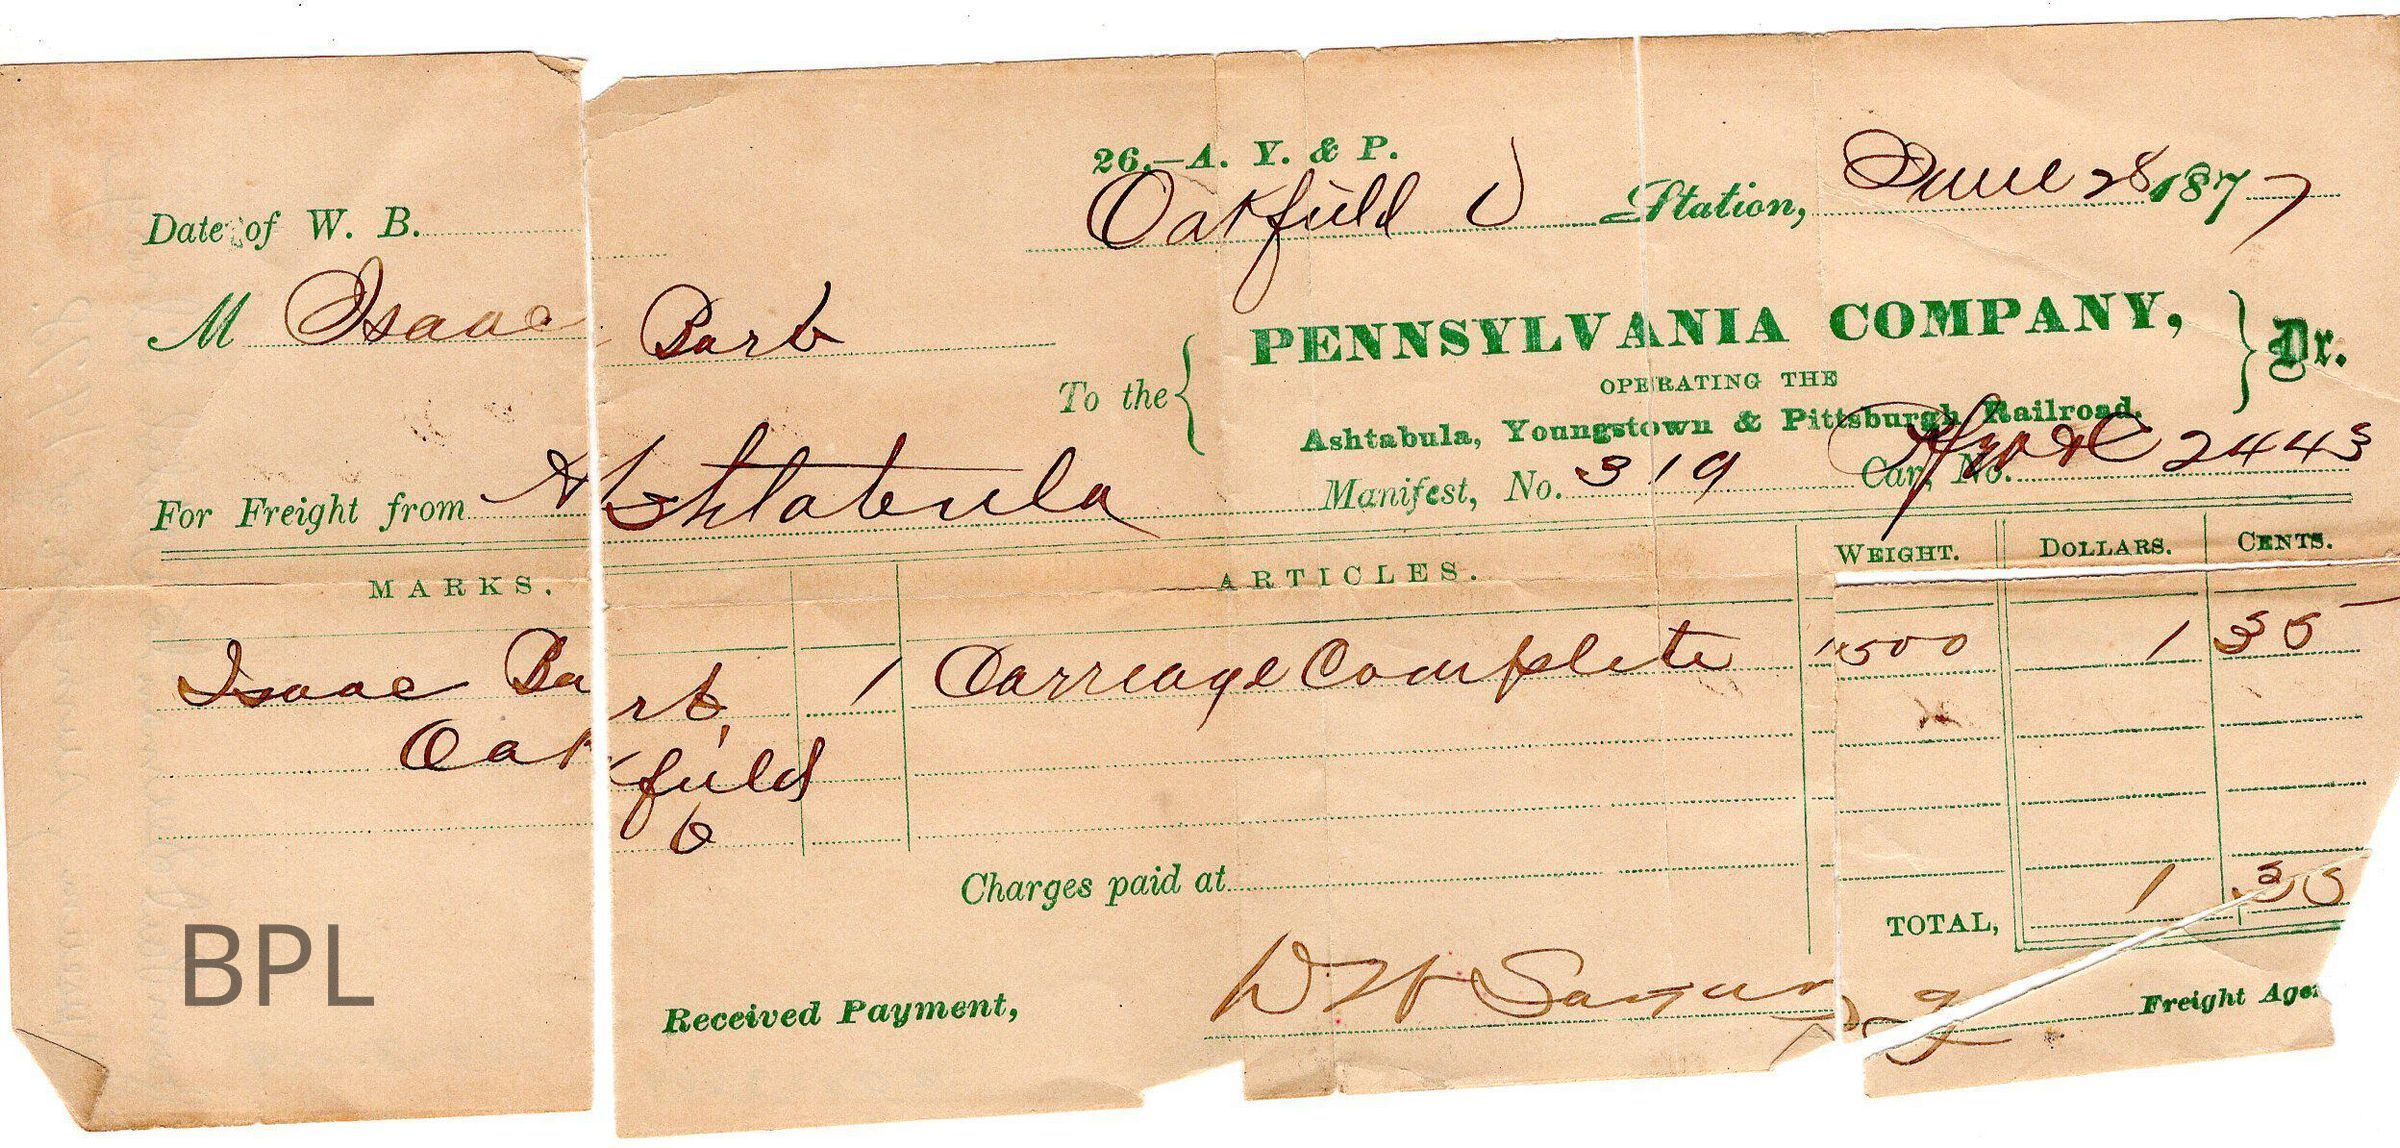 26.—A. Y. & P.
Date of W. B. Oakfield O Station, June 28 1877
M Isaac Barb
To the { PENNSYLVANIA COMPANY, } Dr.
OPERATING THE
Ashtabula, Youngstown & Pittsburgh Railroad.
For Freight from Ashtabula Manifest, No. 319 Car, No. 2443
MARKS. ARTICLES. WEIGHT. DOLLARS. CENTS.
Isaac Barb, 1 Carriage Complete 1500 1 35
Oakfield
O
Charges paid at
TOTAL, 1 35
Received Payment, D W Freight Agen
BPL